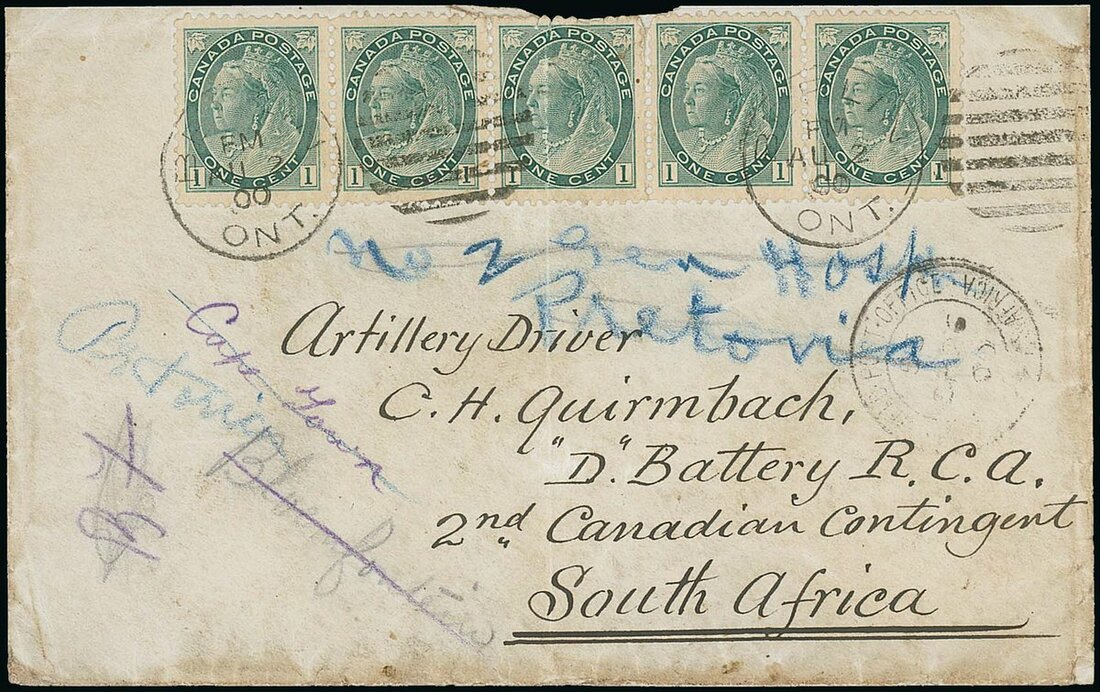 CANADA POSTAGE CANADA POSTAGE CANADA POSTAGE CANADA POSTAGE CANADA POSTAGE
1 ONE CENT 1 1 ONE CENT 1 1 ONE CENT 1 1 ONE CENT 1 1 ONE CENT 1
PM
AU 2
00
ONT.
PM
AU 2
00
ONT.
No 2 Gen Hosp
Pretoria
OFFICE · AFRICA
Artillery Driver
C. H. Quirmbach,
"D" Battery R. C. A.
2nd Canadian Contingent
South Africa
Cape Town
Bloemfontein